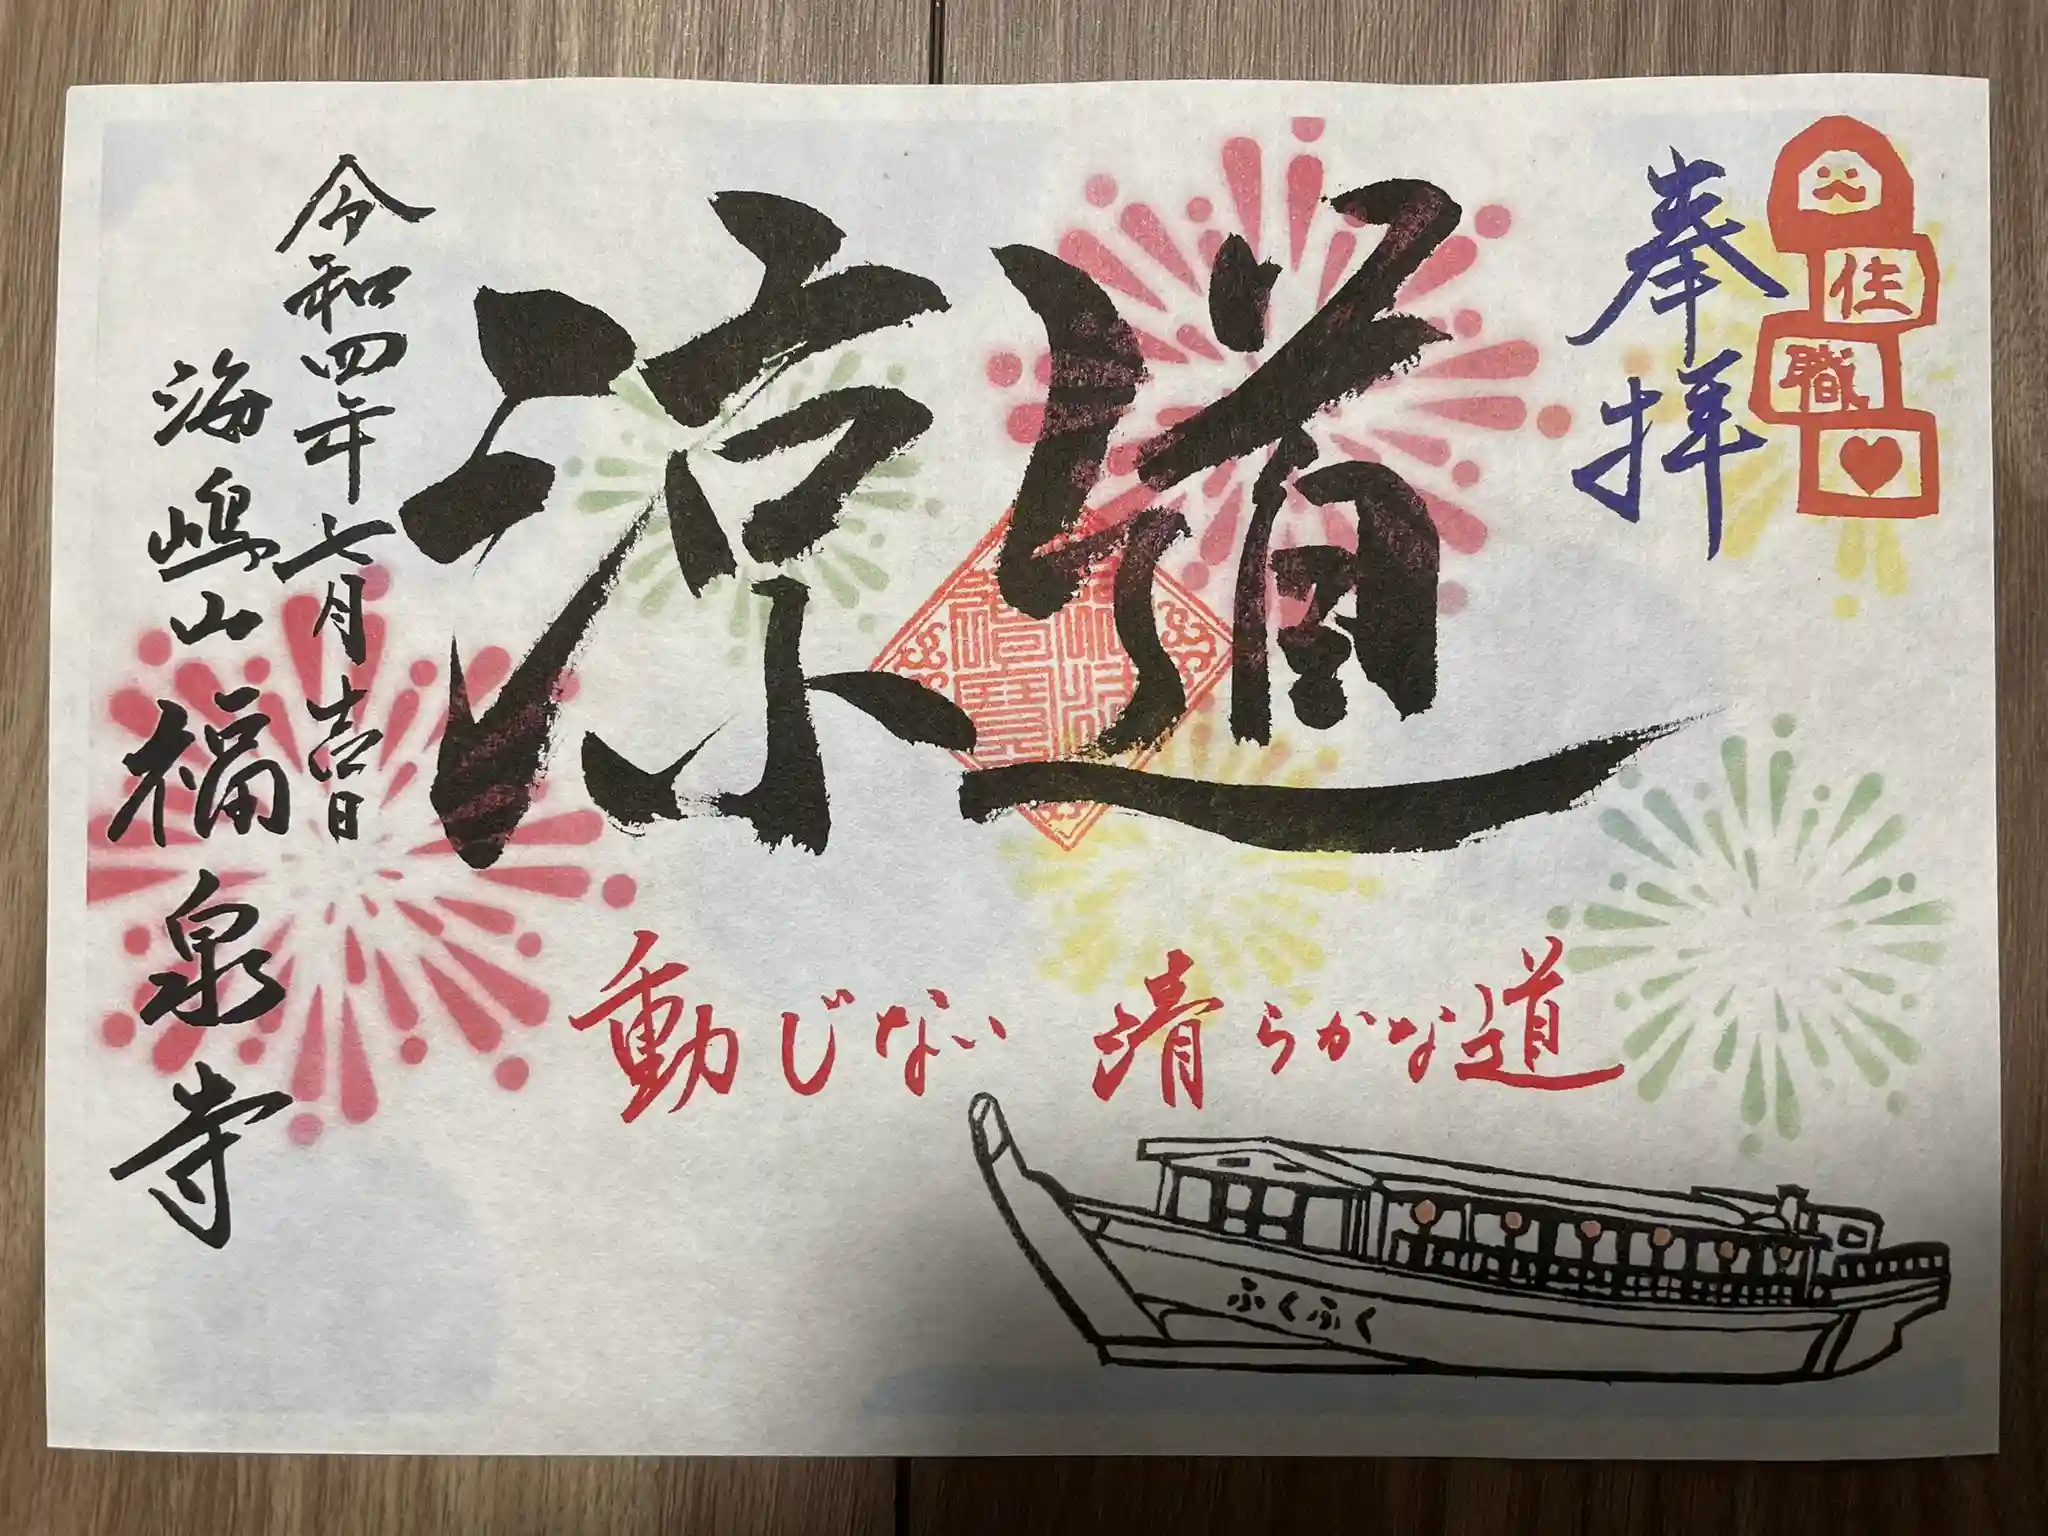 住職
奉拝
道
涼
令和四年七月壱日
海嶋山
福泉寺
動じない 清らかな道
ふくふく